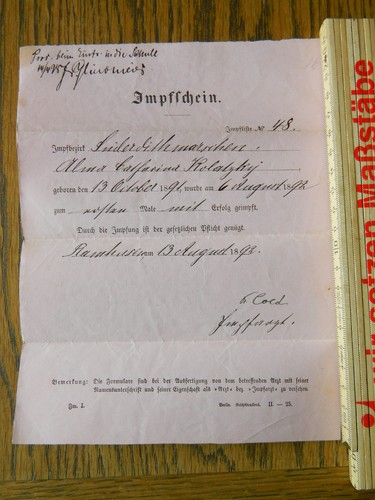 Prot. beim Eintr. in die Schule
Impfschein.
Impfliste № 48.
Impfbezirk Süderdithmarschen.
Alma Catharina Kolatzky
geboren den 13 October 1891 wurde am 6 August 1892
zum ersten Male mit Erfolg geimpft.
Durch die Impfung ist der gesetzlichen Pflicht genügt.
am 13 August 1892.
Impfarzt.
Bemerkung: Die Formulare sind bei der Ausfertigung von dem betreffenden Arzt mit seiner
Namensunterschrift und seiner Eigenschaft als »Arzt« bez. »Impfarzt« zu versehen.
Fm. I.
Berlin. Reichsdruckerei. II — 23.
wir setzen Maßstäbe